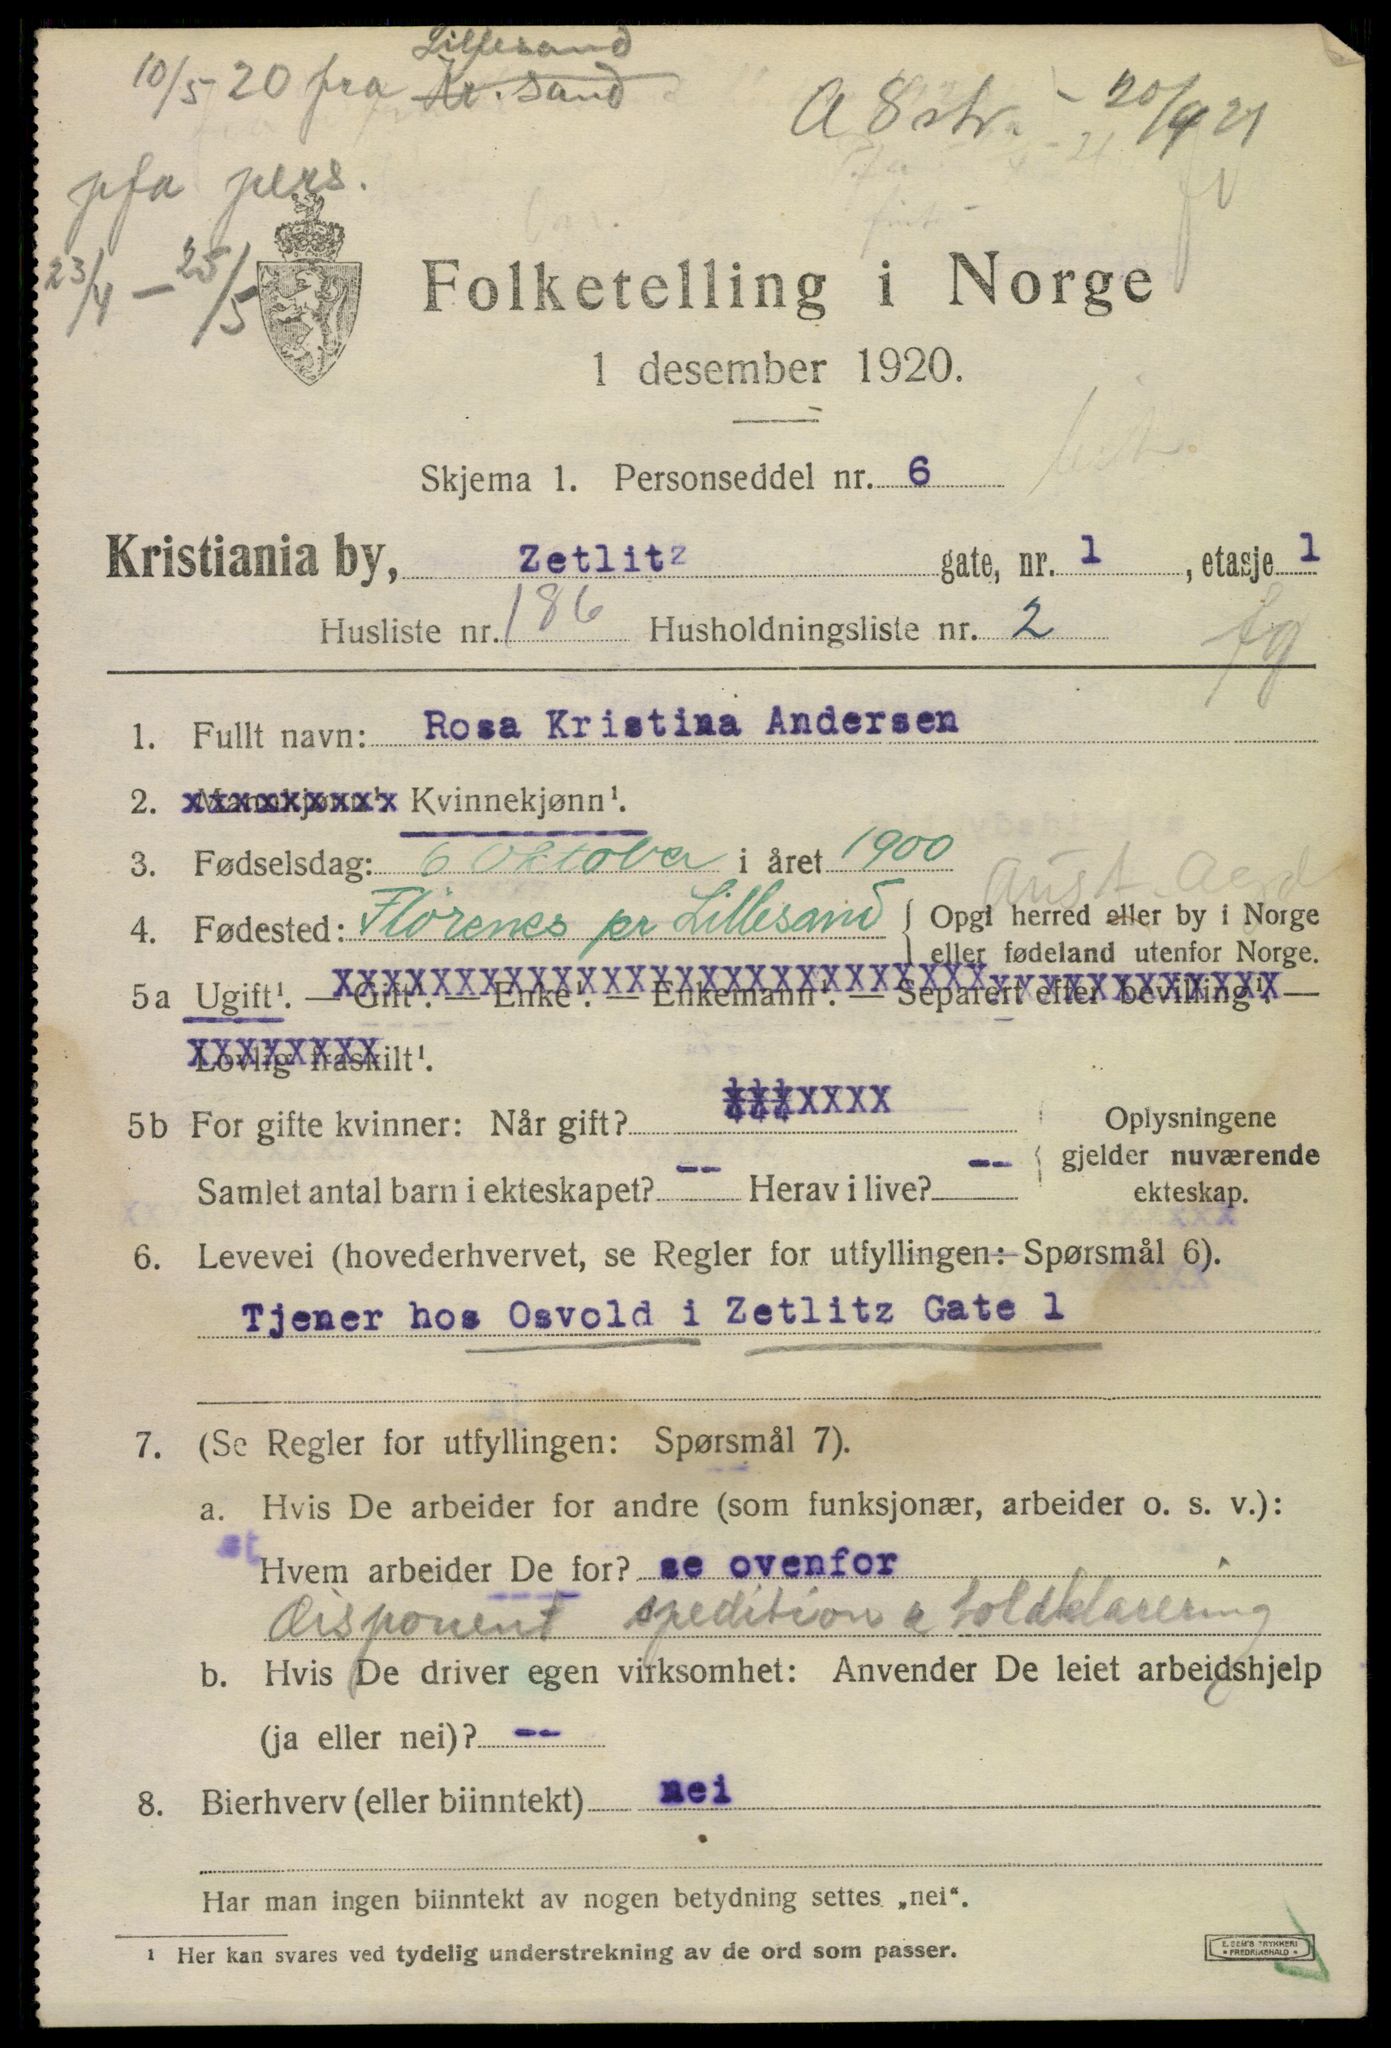 Lillesand
10/5 20 fra Kr.sand
A 8 str. - 20/9 21
pfa pers.
23/4 — 25/5
Folketelling i Norge
1 desember 1920.
Skjema 1. Personseddel nr. 6
Kristiania by, Zetlitz gate, nr. 1, etasje 1
Husliste nr. 186 Husholdningsliste nr. 2
fg
1. Fullt navn: Rosa Kristina Andersen
2. Mannkjønn¹. Kvinnekjønn¹.
3. Fødselsdag: 6 Oktober i året 1900
Aust. Agd
4. Fødested: Flörenes pr Lillesand { Opgi herred eller by i Norge
eller fødeland utenfor Norge.
5a Ugift¹. — Gift¹. — Enke¹. — Enkemann¹. — Separert efter bevilling¹. —
Lovlig fraskilt¹.
5b For gifte kvinner: Når gift? XXXXXXX
Samlet antal barn i ekteskapet? -- Herav i live? --
Oplysningene
gjelder nuværende
ekteskap.
6. Levevei (hovederhvervet, se Regler for utfyllingen: Spørsmål 6).
Tjener hos Osvold i Zetlitz Gate 1
7. (Se Regler for utfyllingen: Spørsmål 7).
a. Hvis De arbeider for andre (som funksjonær, arbeider o. s. v.):
Hvem arbeider De for? se ovenfor
disponent spedition & toldklarering
b. Hvis De driver egen virksomhet: Anvender De leiet arbeidshjelp
(ja eller nei)? --
8. Bierhverv (eller biinntekt) nei
Har man ingen biinntekt av nogen betydning settes „nei“.
¹ Her kan svares ved tydelig understrekning av de ord som passer.
E. SEM'S TRYKKERI
FREDRIKSHALD